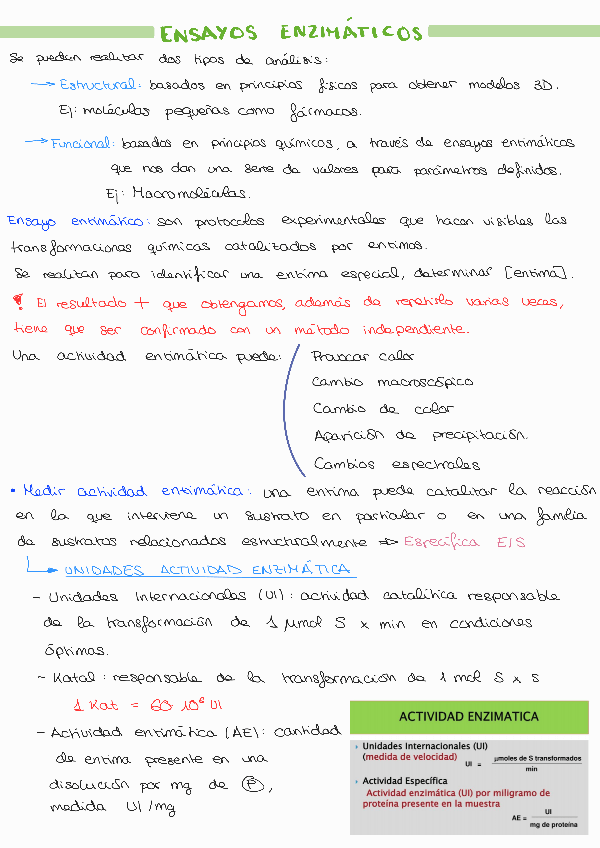 ENSAYOS ENZIMÁTICOS
Se pueden realizar dos tipos de análisis:
→ Estructural: basados en principios físicos para obtener modelos 3D.
Ej: moléculas pequeñas como fármacos.
→ Funcional: basados en principios químicos, a través de ensayos enzimáticos
que nos dan una serie de valores para parámetros definidos.
Ej: Macromoléculas.
Ensayo enzimático: son protocolos experimentales que hacen visibles las
transformaciones químicas catalizadas por enzimas.
Se realizan para identificar una enzima especial, determinar [enzima].
! El resultado + que obtengamos, además de repetirlo varias veces,
tiene que ser confirmado con un método independiente.
Una actividad enzimática puede:
Provocar calor
Cambio macroscópico
Cambio de color
Aparición de precipitación.
Cambios espectrales
• Medir actividad enzimática: una enzima puede catalizar la reacción
en la que interviene un sustrato en particular o en una familia
de sustratos relacionados estructuralmente => Específica E/S
→ UNIDADES ACTIVIDAD ENZIMÁTICA
- Unidades Internacionales (UI): actividad catalítica responsable
de la transformación de 1 µmol S x min en condiciones
óptimas.
- Katal: responsable de la transformación de 1 mol S x s
1 Kat = 60·10⁶ UI
- Actividad enzimática (AE): cantidad
de enzima presente en una
disolución por mg de P,
medida UI/mg
ACTIVIDAD ENZIMATICA
Unidades Internacionales (UI)
(medida de velocidad) UI = µmoles de S transformados
min
Actividad Específica
Actividad enzimática (UI) por miligramo de
proteína presente en la muestra
AE = UI
mg de proteína